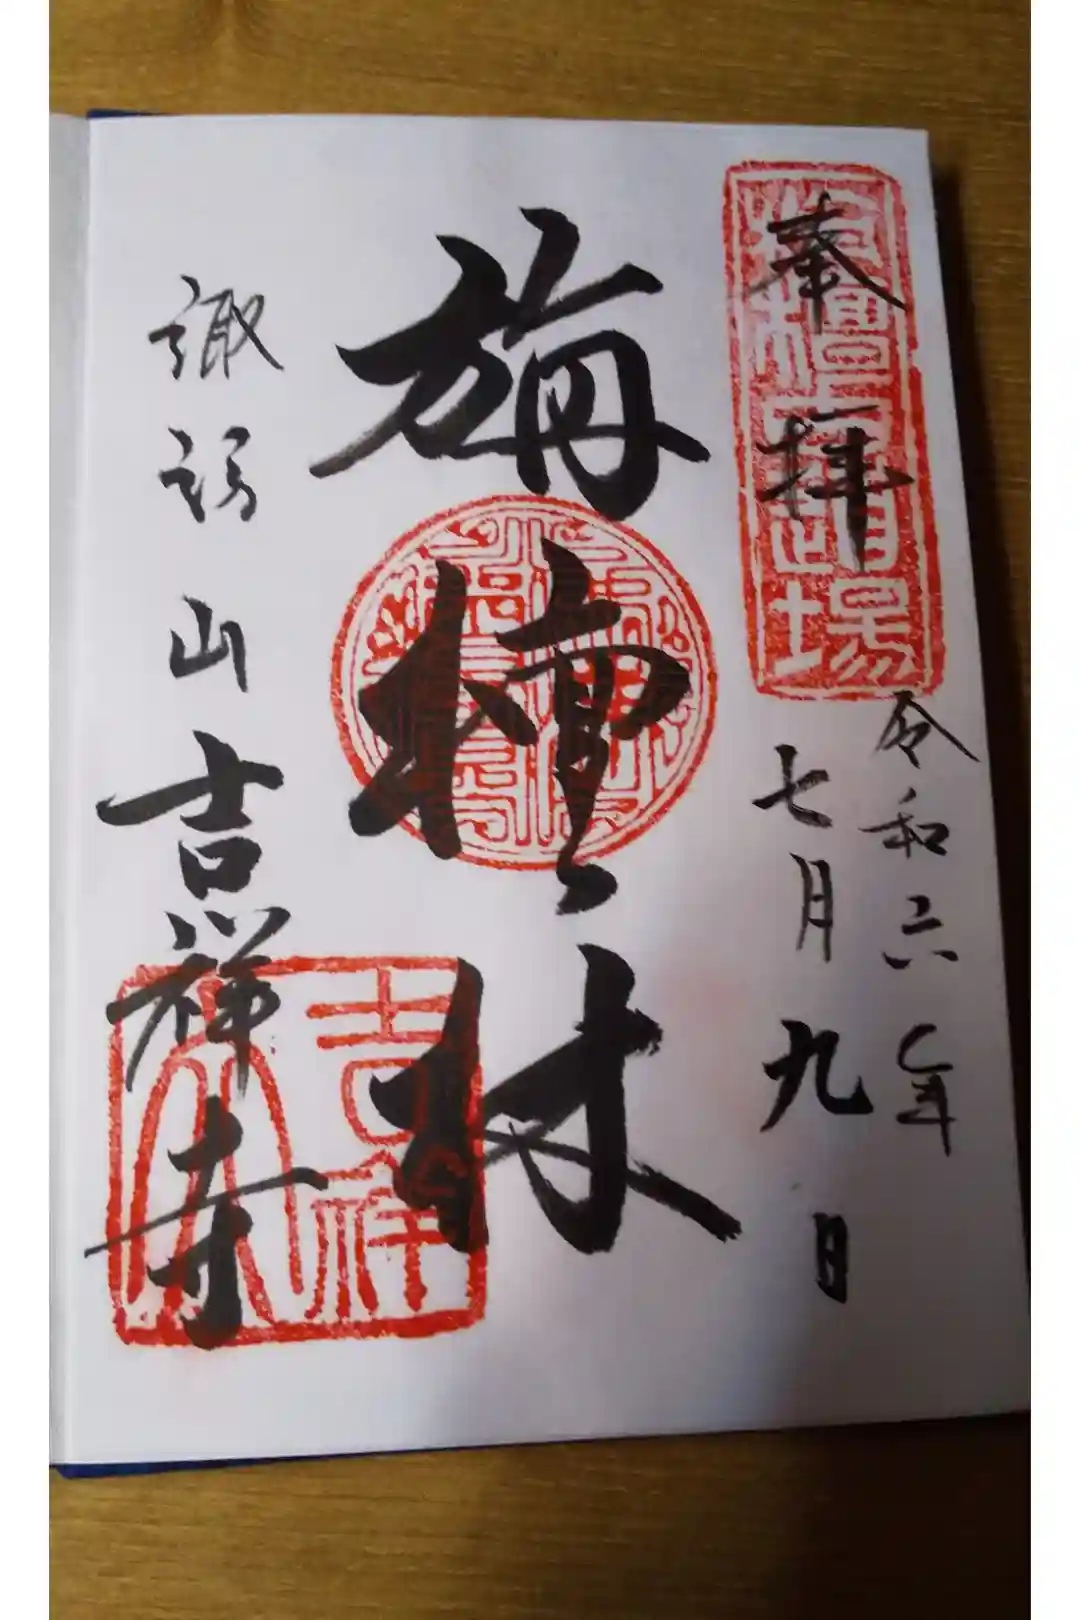 奉拝
令和六年
七月九日
旃檀林
諏訪山吉祥寺
吉祥